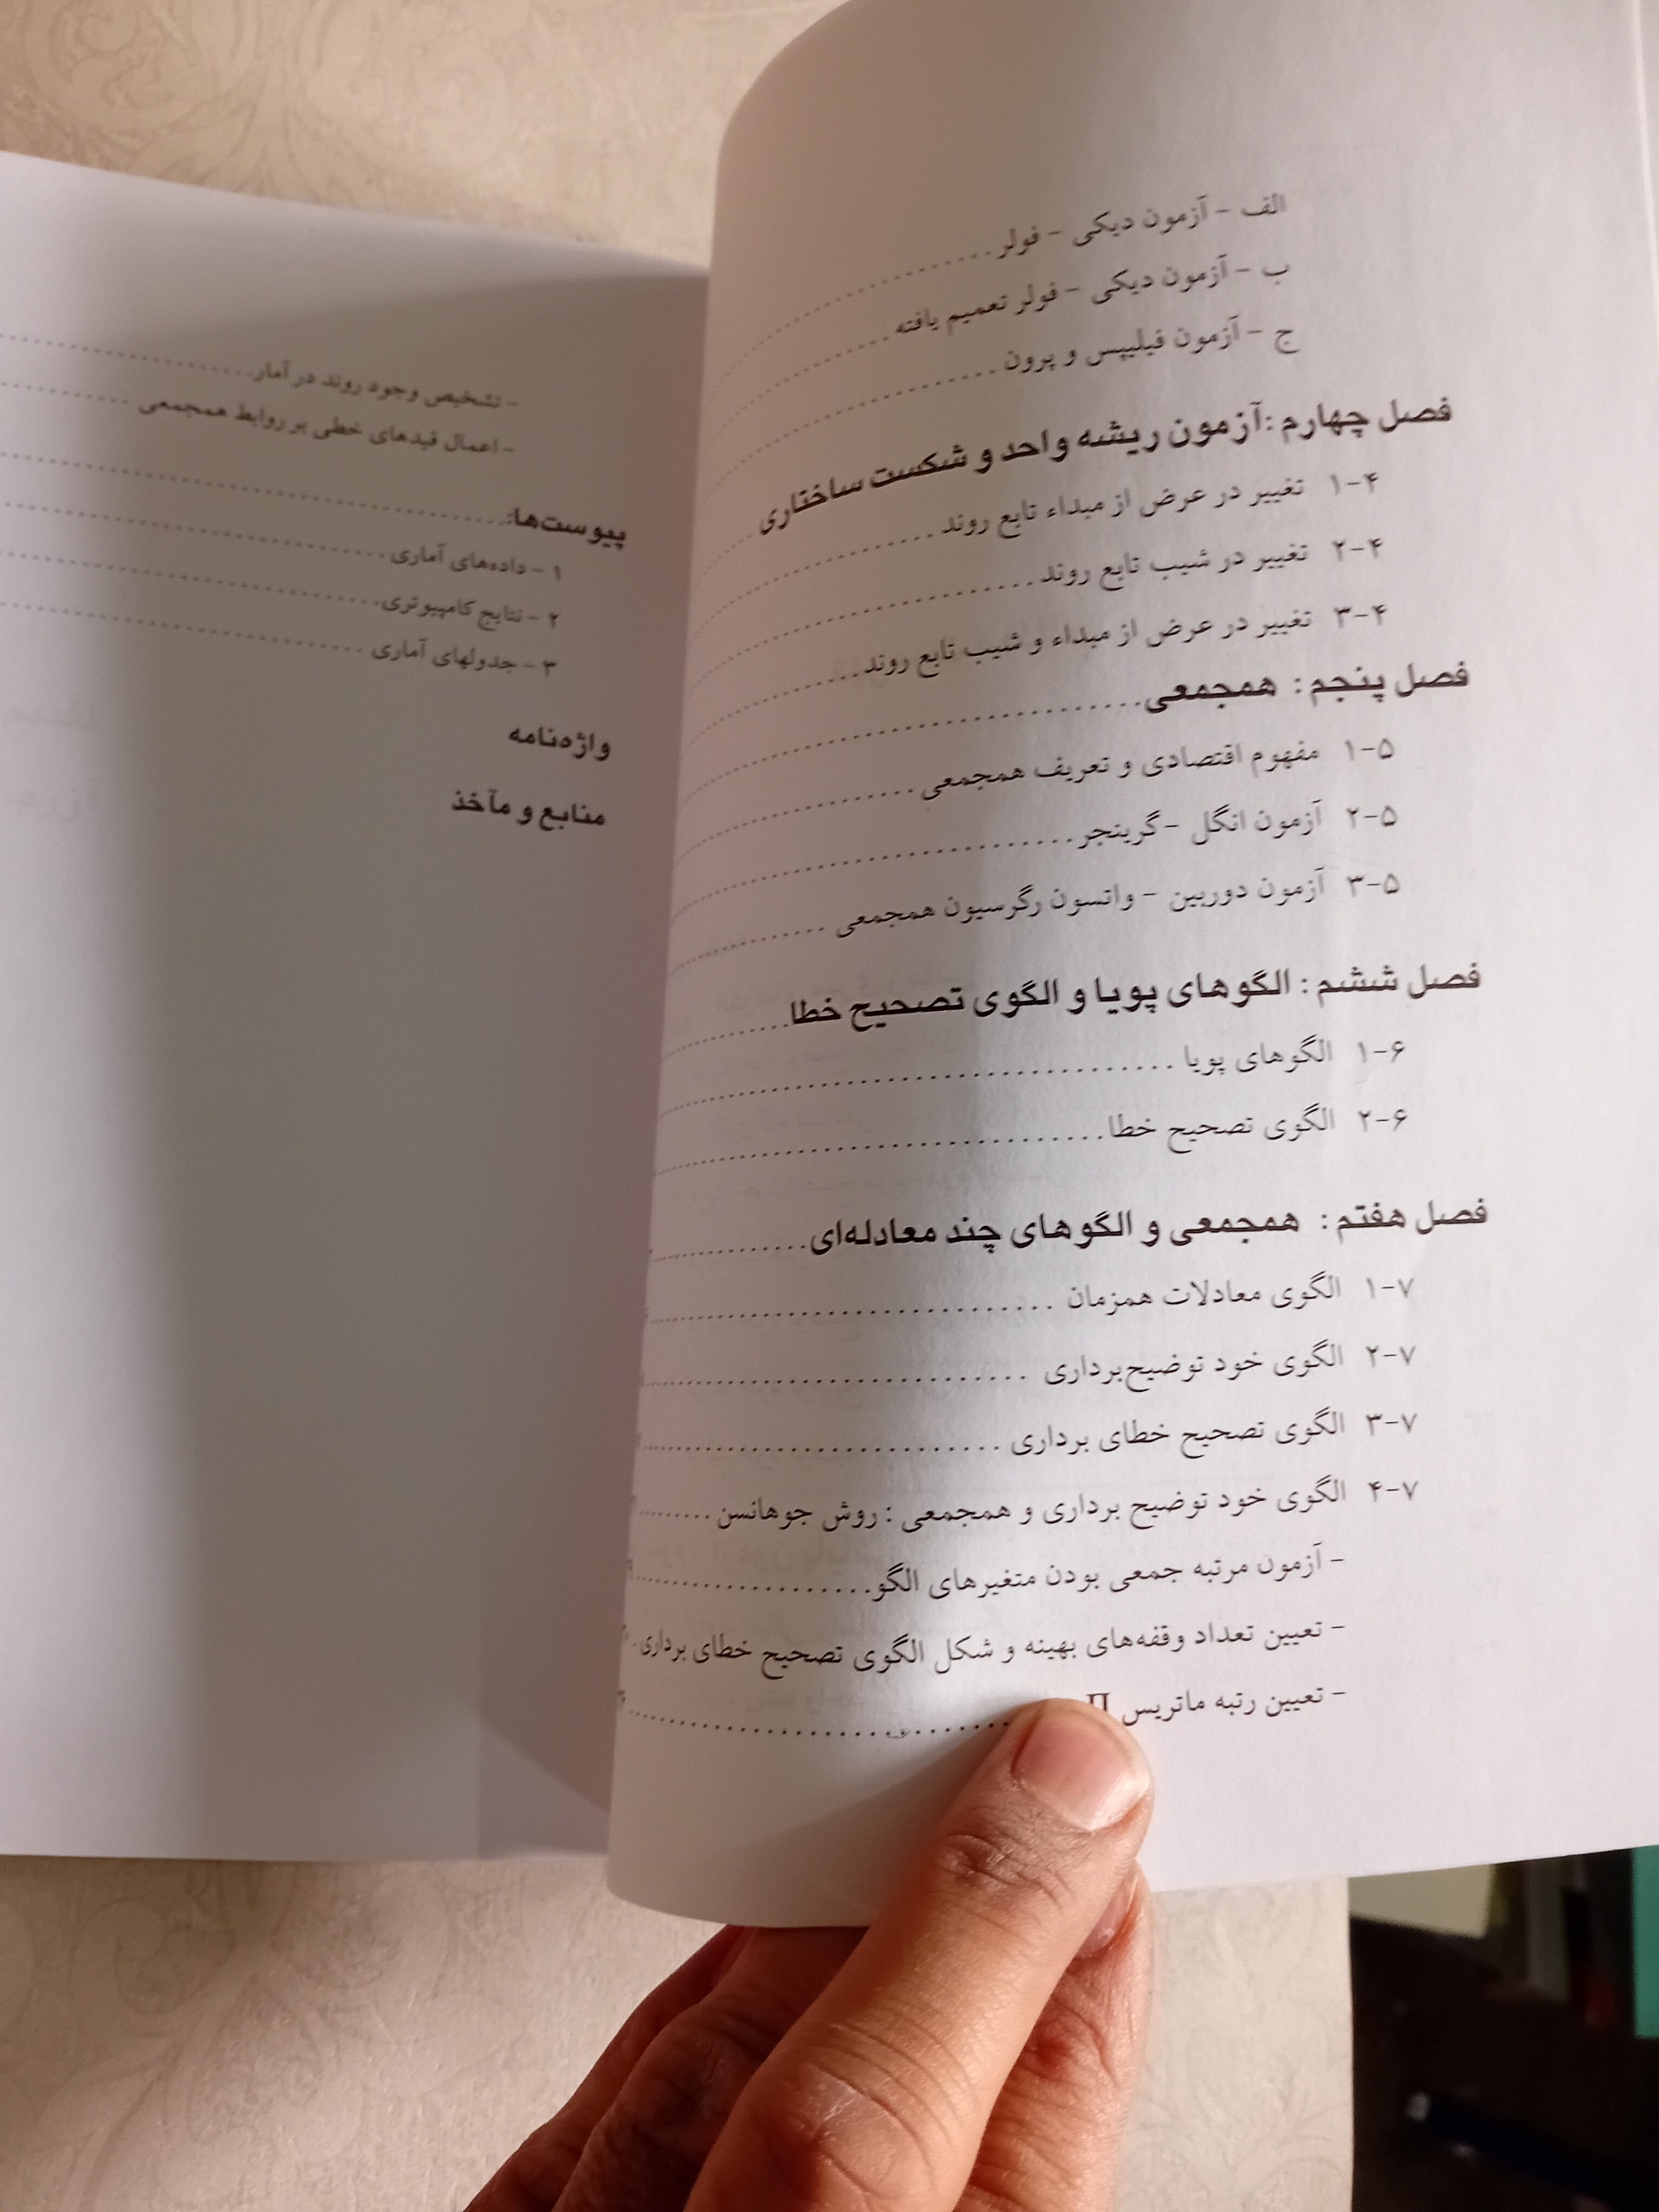 الف - آزمون دیکی - فولر
ب - آزمون دیکی - فولر تعمیم یافته
ج - آزمون فیلیپس و پرون
فصل چهارم : آزمون ریشه واحد و شکست ساختاری
۴-۱ تغییر در عرض از مبداء تابع روند
۴-۲ تغییر در شیب تابع روند
۴-۳ تغییر در عرض از مبداء و شیب تابع روند
فصل پنجم : همجمعی
۵-۱ مفهوم اقتصادی و تعریف همجمعی
۵-۲ آزمون انگل - گرینجر
۵-۳ آزمون دوربین - واتسون رگرسیون همجمعی
فصل ششم : الگوهای پویا و الگوی تصحیح خطا
۶-۱ الگوهای پویا
۶-۲ الگوی تصحیح خطا
فصل هفتم : همجمعی و الگوهای چند معادله‌ای
۷-۱ الگوی معادلات همزمان
۷-۲ الگوی خود توضیح‌برداری
۷-۳ الگوی تصحیح خطای برداری
۷-۴ الگوی خود توضیح برداری و همجمعی : روش جوهانسن
- آزمون مرتبه جمعی بودن متغیرهای الگو
- تعیین تعداد وقفه‌های بهینه و شکل الگوی تصحیح خطای برداری
- تعیین رتبه ماتریس Π
- تشخیص وجود روند در آمار
- اعمال قیدهای خطی بر روابط همجمعی
پیوست‌ها:
۱ - داده‌های آماری
۲ - نتایج کامپیوتری
۳ - جدولهای آماری
واژه‌نامه
منابع و مآخذ